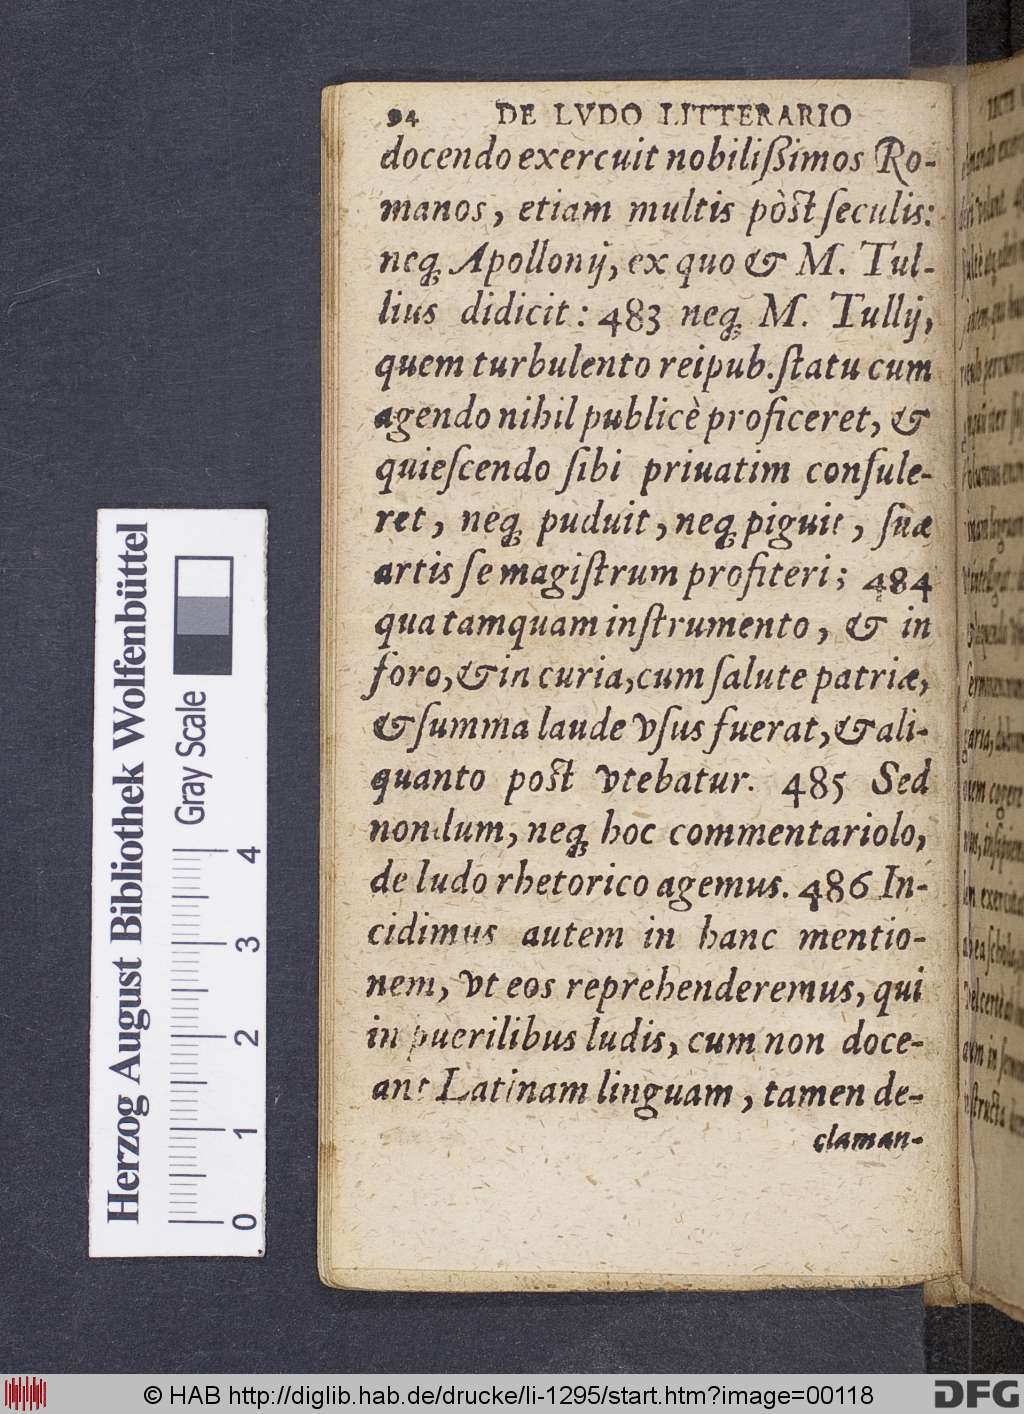 94 DE LVDO LITTERARIO
docendo exercuit nobilißimos Ro-
manos, etiam multis pòst seculis:
neq́ꝫ Apollonij, ex quo & M. Tul-
lius didicit: 483 neq́ꝫ M. Tullij,
quem turbulento reipub. ſtatu cum
agendo nihil publicè proficeret, &
quieſcendo ſibi priuatim conſule-
ret, neq́ꝫ puduit, neq́ꝫ piguit, ſuæ
artis ſe magiſtrum profiteri; 484
qua tamquam inſtrumento, & in
foro, & in curia, cum ſalute patriæ,
& ſumma laude vſus fuerat, & ali-
quanto poſt vtebatur. 485 Sed
nondum, neq́ꝫ hoc commentariolo,
de ludo rhetorico agemus. 486 In-
cidimus autem in hanc mentio-
nem, vt eos reprehenderemus, qui
in puerilibus ludis, cum non doce-
ant Latinam linguam, tamen de-
claman-
Herzog August Bibliothek Wolfenbüttel
Gray Scale
0 1 2 3 4
© HAB http://diglib.hab.de/drucke/li-1295/start.htm?image=00118
DFG